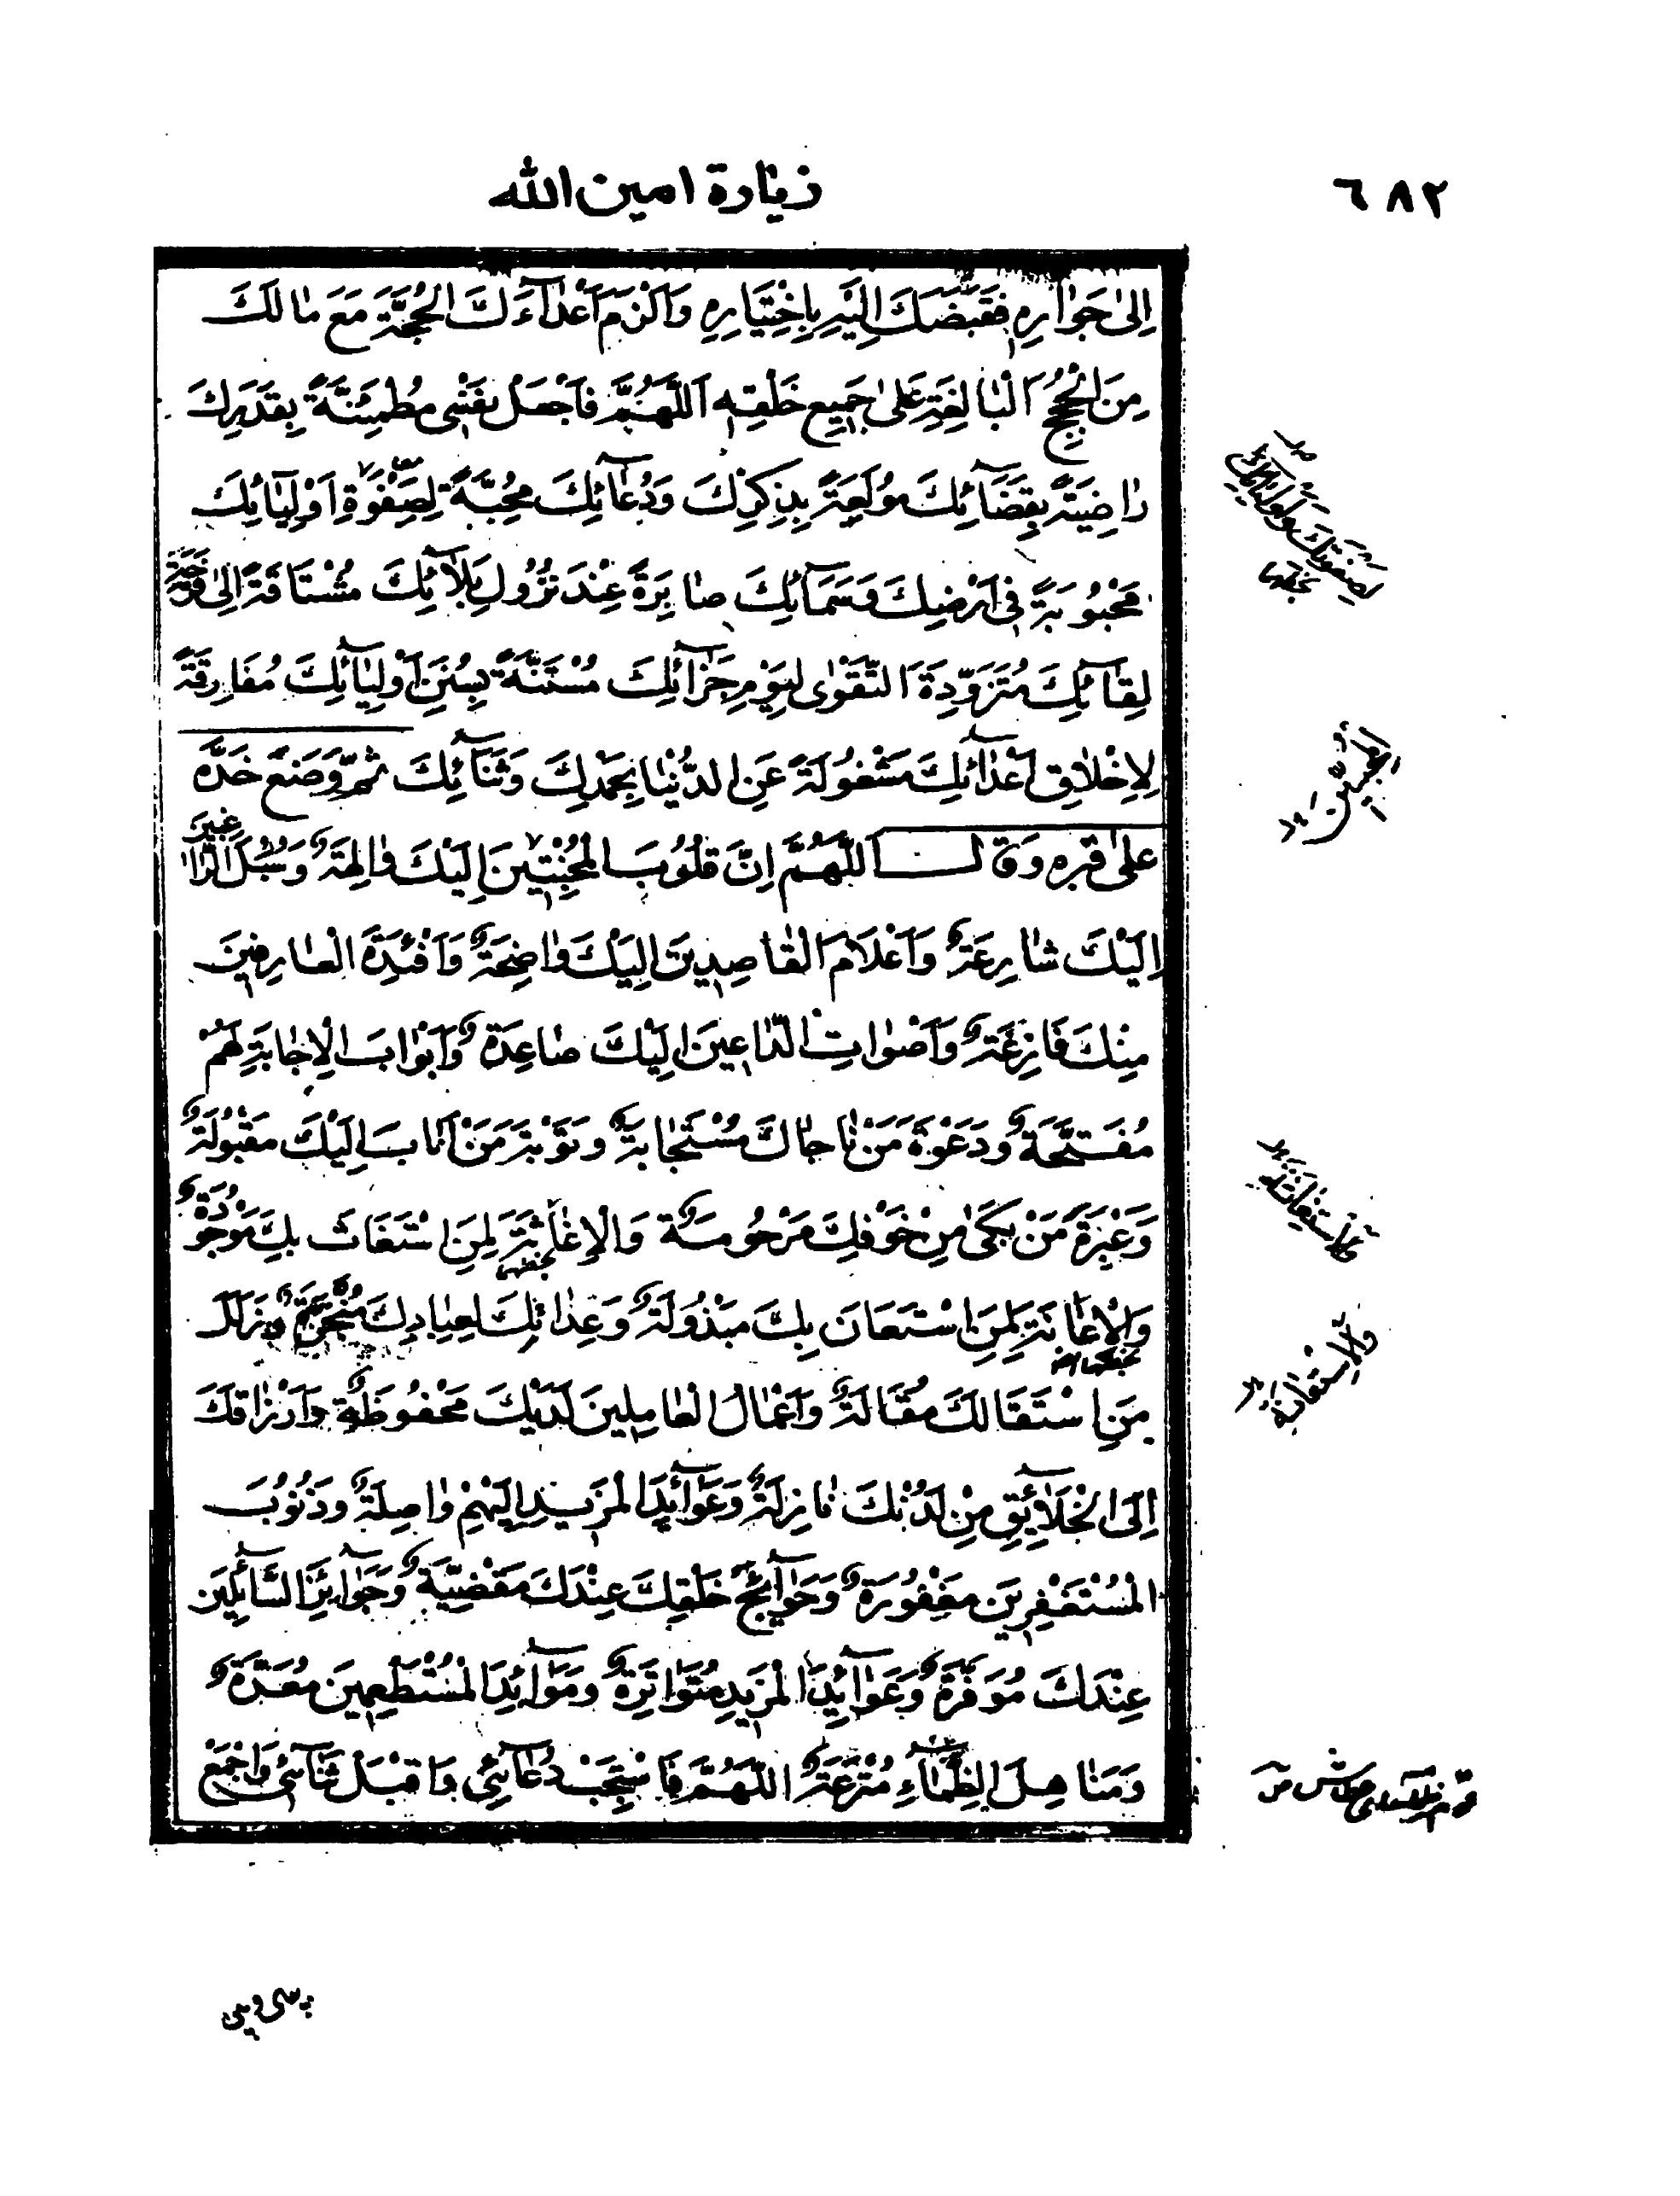 زيارة امين الله
٦٨٢
اِلىٰ جَوٰارِهِ فَقَبَضَكَ اِلَيْهِ بِاِخْتِيَارِهِ وَاَلْزَمَ اَعْدٰآءَكَ الْحُجَّةَ مَعَ مٰا لَكَ
مِنَ الْحُجَجِ الْبٰالِغَةِ عَلىٰ جَمِيعِ خَلْقِهِ اَللّٰهُمَّ فَاجْعَلْ نَفْسِى مُطْمَئِنَّةً بِقَدَرِكَ
رٰاضِيَةً بِقَضَآئِكَ مُولَعَةً بِذِكْرِكَ وَدُعٰآئِكَ مُحِبَّةً لِصَفْوَةِ اَوْلِيٰآئِكَ
لِصَفْوَتِكَ وَاَوْلِيٰآئِكَ
مَحْبُوبَةً فِى اَرْضِكَ وَسَمَآئِكَ صٰابِرَةً عِنْدَ نُزُولِ بَلٰآئِكَ مُشْتٰاقَةً اِلىٰ فَرْحَةِ
لِقٰآئِكَ مُتَزَوِّدَةً التَّقْوٰى لِيَوْمِ جَزٰآئِكَ مُسْتَنَّةً بِسُنَنِ اَوْلِيٰآئِكَ مُفَارِقَةً
لِاَخْلٰاقِ اَعْدٰآئِكَ مَشْغُولَةً عَنِ الدُّنْيٰا بِحَمْدِكَ وَثَنَآئِكَ ثمّ وَضَعَ خَدَّه
على قبره وَقال اَللّٰهُمَّ اِنَّ قُلُوبَ الْمُخْبِتِينَ اِلَيْكَ وٰالِهَةٌ وَسُبُلَ الرّٰاغِبِينَ
اِلَيْكَ شٰارِعَةٌ وَاَعْلَامَ الْقٰاصِدِينَ اِلَيْكَ وٰاضِحَةٌ وَاَفْئِدَةَ الْعٰارِفِينَ
مِنْكَ فَازِعَةٌ وَاَصْوٰاتَ الدّٰاعِينَ اِلَيْكَ صٰاعِدَةٌ وَاَبْوٰابَ الْاِجٰابَةِ لَهُمْ
مُفَتَّحَةٌ وَدَعْوَةَ مَنْ نٰاجٰاكَ مُسْتَجٰابَةٌ وَتَوْبَةَ مَنْ اَنٰابَ اِلَيْكَ مَقْبُولَةٌ
وَعَبْرَةَ مَنْ بَكىٰ مِنْ خَوْفِكَ مَرْحُومَةٌ وَالْاِغٰاثَةَ لِمَنِ اسْتَغَاثَ بِكَ مَوْجُودَةٌ
وَالْاِعٰانَةَ لِمَنِ اسْتَعَانَ بِكَ مَبْذُولَةٌ وَعِدٰاتِكَ لِعِبٰادِكَ مُنْجَزَةٌ وَزَلَلَ
مَنِ اسْتَقَالَكَ مُقَالَةٌ وَاَعْمٰالَ الْعٰامِلِينَ لَدَيْكَ مَحْفُوظَةٌ وَاَرْزٰاقَكَ
اِلَى الْخَلَآئِقِ مِنْ لَدُنْكَ نٰازِلَةٌ وَعَوَآئِدَ الْمَزِيدِ اِلَيْهِمْ وٰاصِلَةٌ وَذُنُوبَ
الْمُسْتَغْفِرِينَ مَغْفُورَةٌ وَحَوَآئِجَ خَلْقِكَ عِنْدَكَ مَقْضِيَّةٌ وَجَوَآئِزَ السَّآئِلِينَ
عِنْدَكَ مُوَفَّرَةٌ وَعَوَآئِدَ الْمَزِيدِ مُتَوَاتِرَةٌ وَمَوَآئِدَ الْمُسْتَطْعِمِينَ مُعَدَّةٌ
وَمَنٰاهِلَ الظِّمٰآءِ مُتْرَعَةٌ اَللّٰهُمَّ فَاسْتَجِبْ دُعٰآئِى وَاقْبَلْ ثَنٰآئِى وَاجْمَعْ